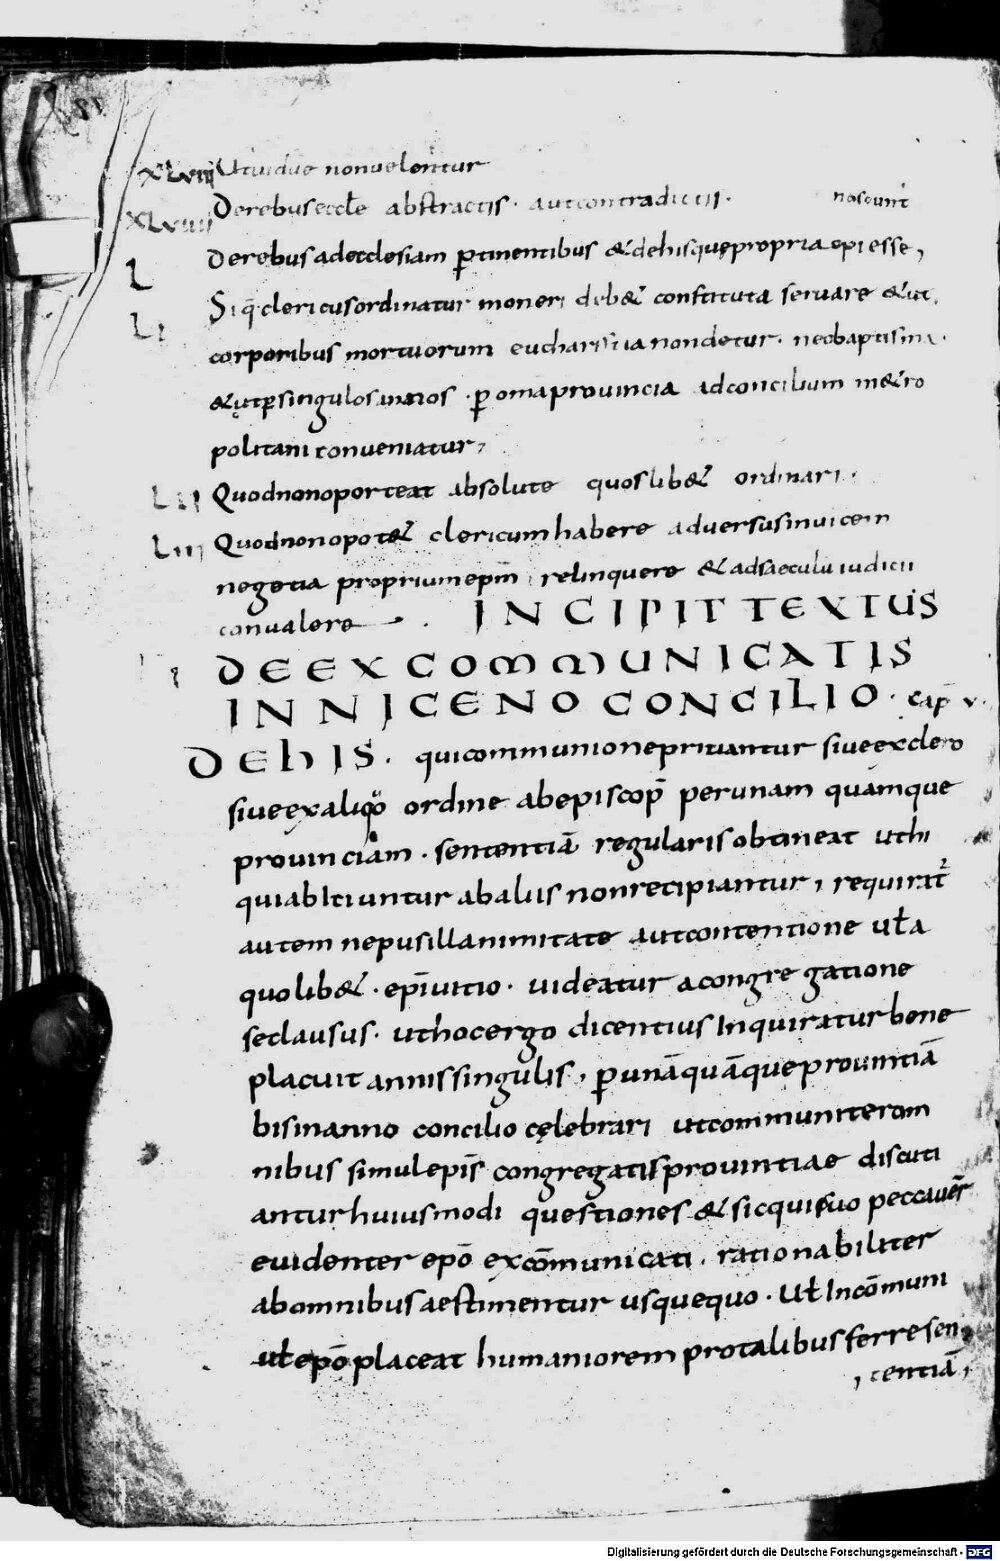 XLVIII Utuiduae nonuelentur
XLVIIII Derebus eccłe abstractis · aut contradictis · noscunt̄
L Derebus adecclesiam ꝑtinentibus & dehisque propria epi esse,
LI Siq̄ clericus ordinatur moneri deb& constituta seruare & ut
corporibus mortuorum eucharistia nondetur · necbaptisma ·
& ut ꝑ singulos annos · ꝑ omā prouincia adconcilium m&ro
politani conueniatur,
LII Quodnonoporteat absolute quoslib& ordinari ·
LIII Quodnonopot& clericum habere aduersus inuicem
negotia proprium ep̄m relinquere & adsaeculi iudicii
conualere · INCIPIT TEXTUS
DE EXCOMMUNICATIS
IN NICENO CONCILIO · cap̄ v ·
DE HIS · qui communione priuantur siue exclero
siue ex aliquo ordine ab episcop̄ per unam quamque
prouinciam · sententiā regularis obtineat uthi
qui abiciuntur ab aliis non recipiantur, requirat̄
autem ne pusillanimitate aut contentione uła
quolib& · ep̄i uitio · uideatur a congregatione
seclausus · ut hoc ergo dicentius Inquiratur bene
placuit annis singulis, ꝑ unā quāque prouintiā
bis inanno concilio cęlebrari ut communiter om
nibus simul ep̄is congregatis prouintiae discuti
antur huiusmodi questiones & sic qui suo peccauer̄
euidenter ep̄o excōmunicati · rationabiliter
ab omnibus aestimentur usquequo · Uł Incōmuni
uł ep̄o placeat humaniorem pro talibus ferre sen
tentiā,
Digitalisierung gefördert durch die Deutsche Forschungsgemeinschaft - DFG